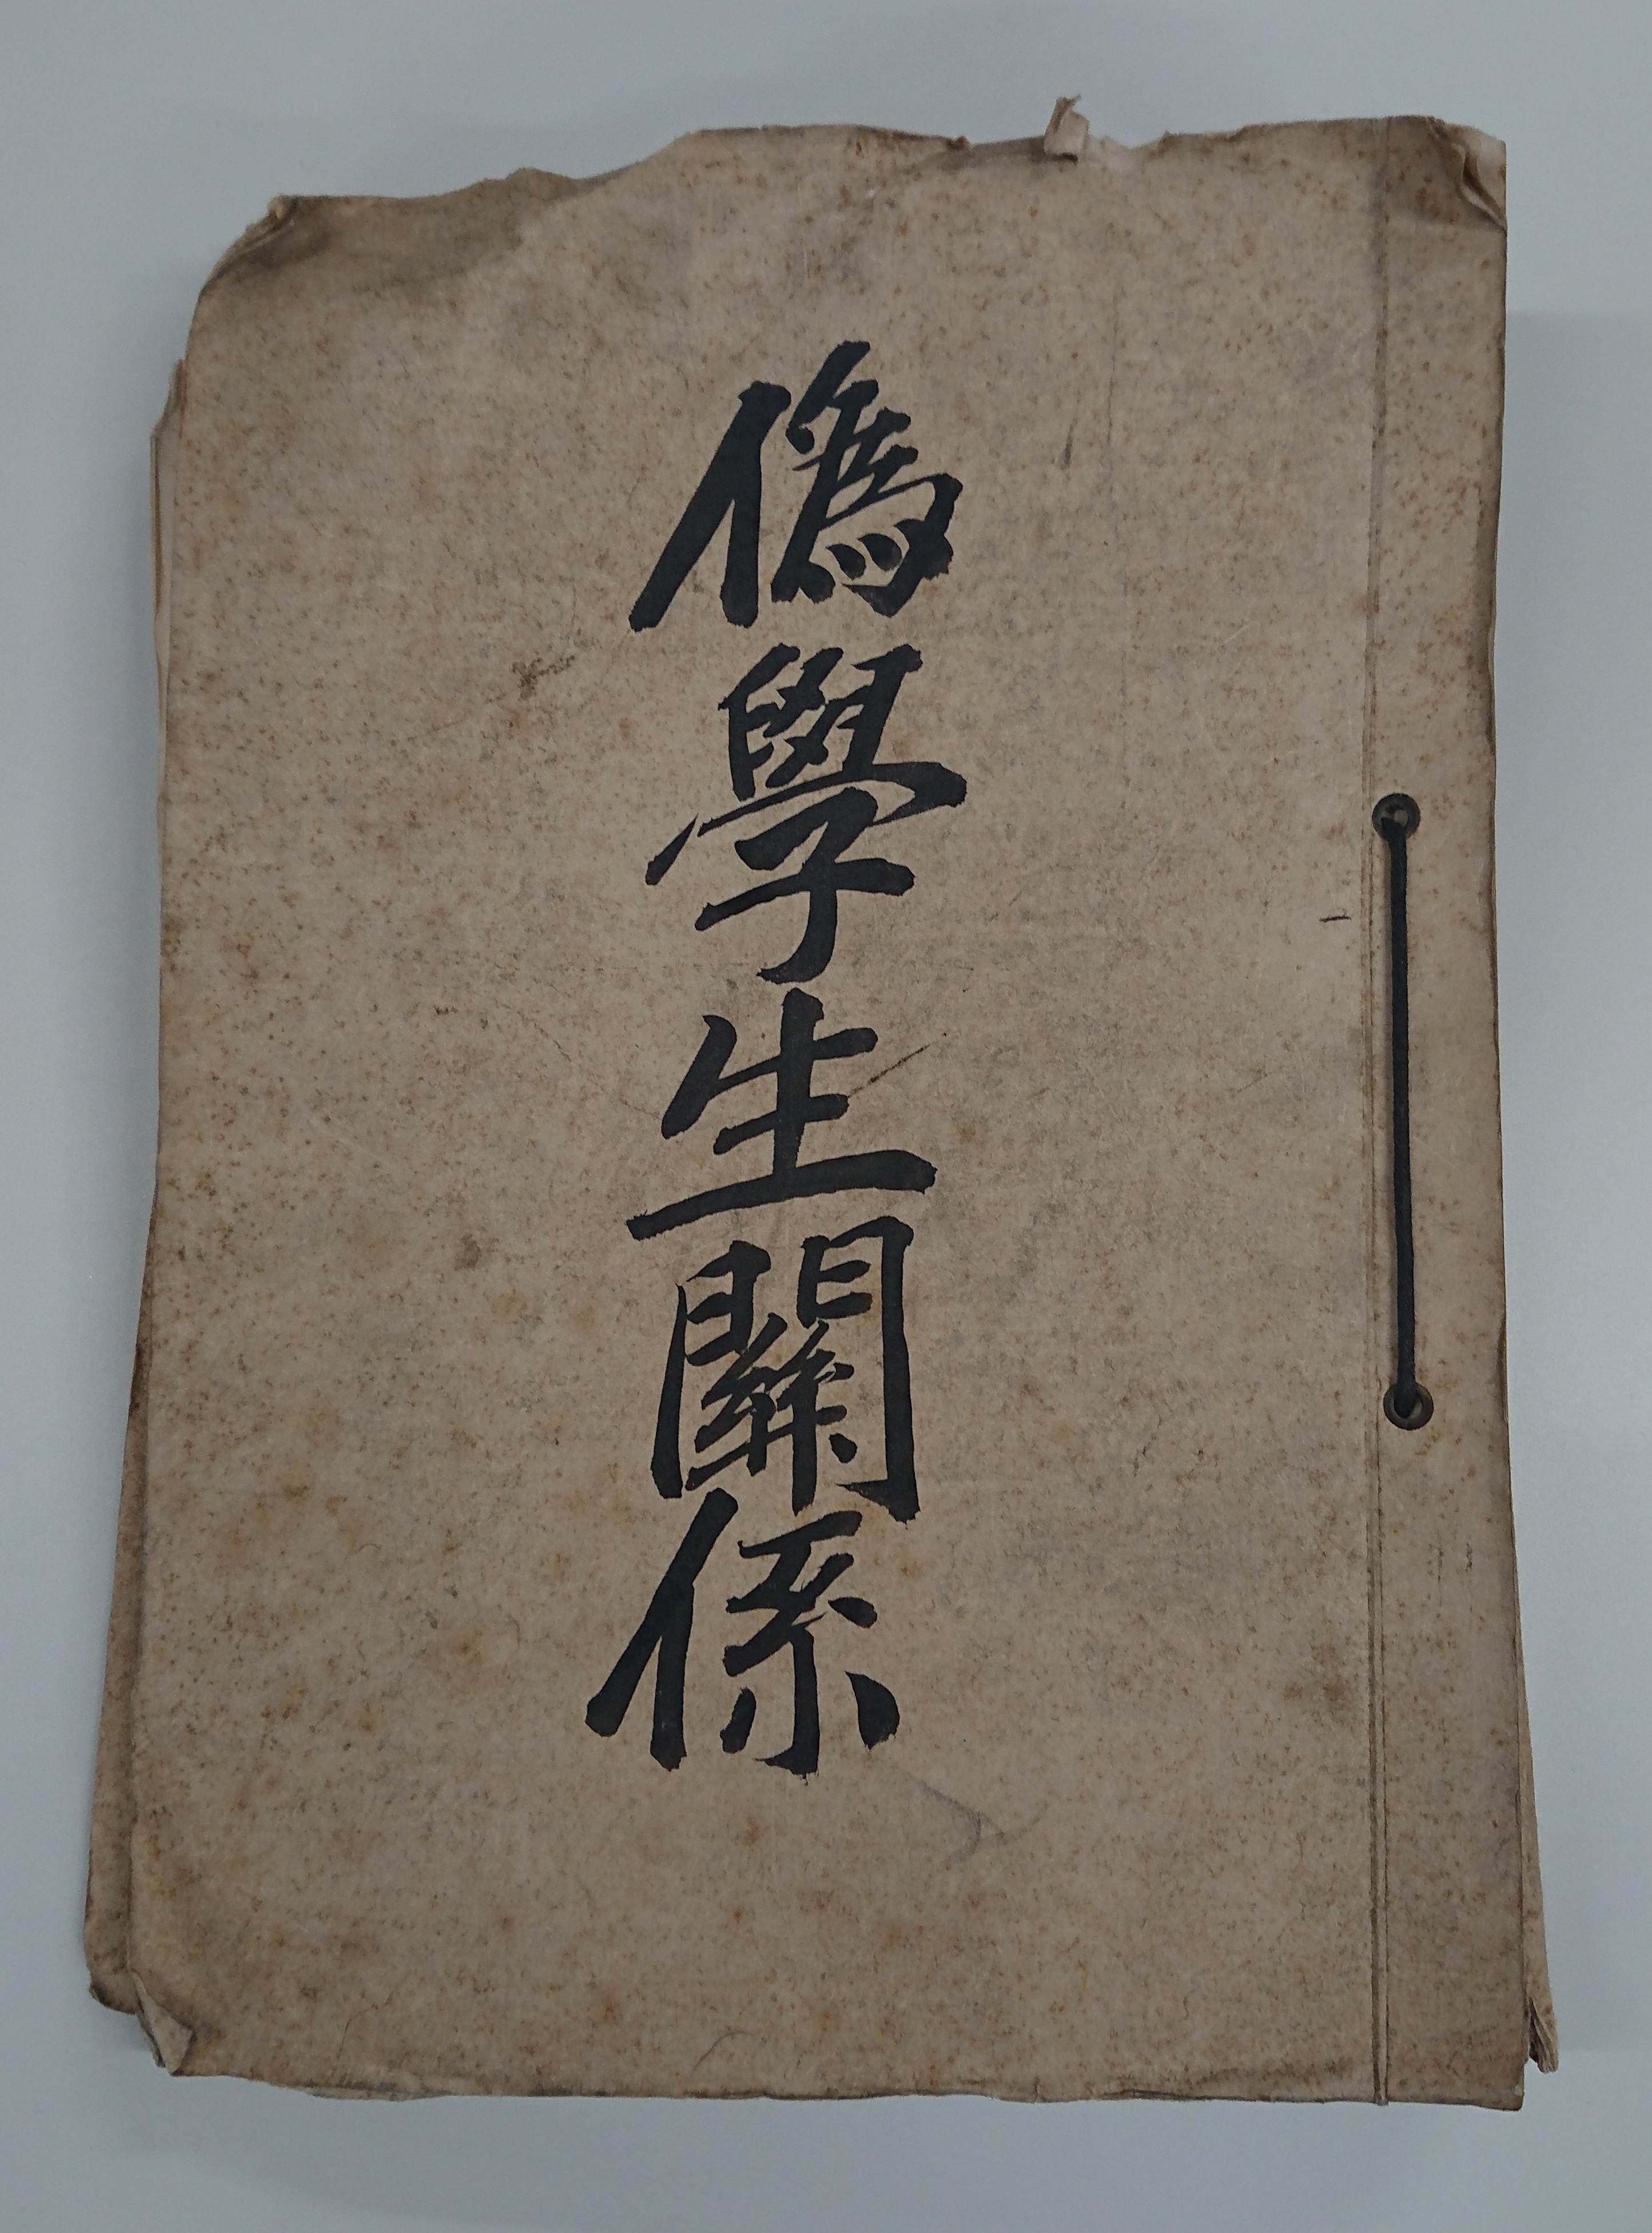 僞學生關係